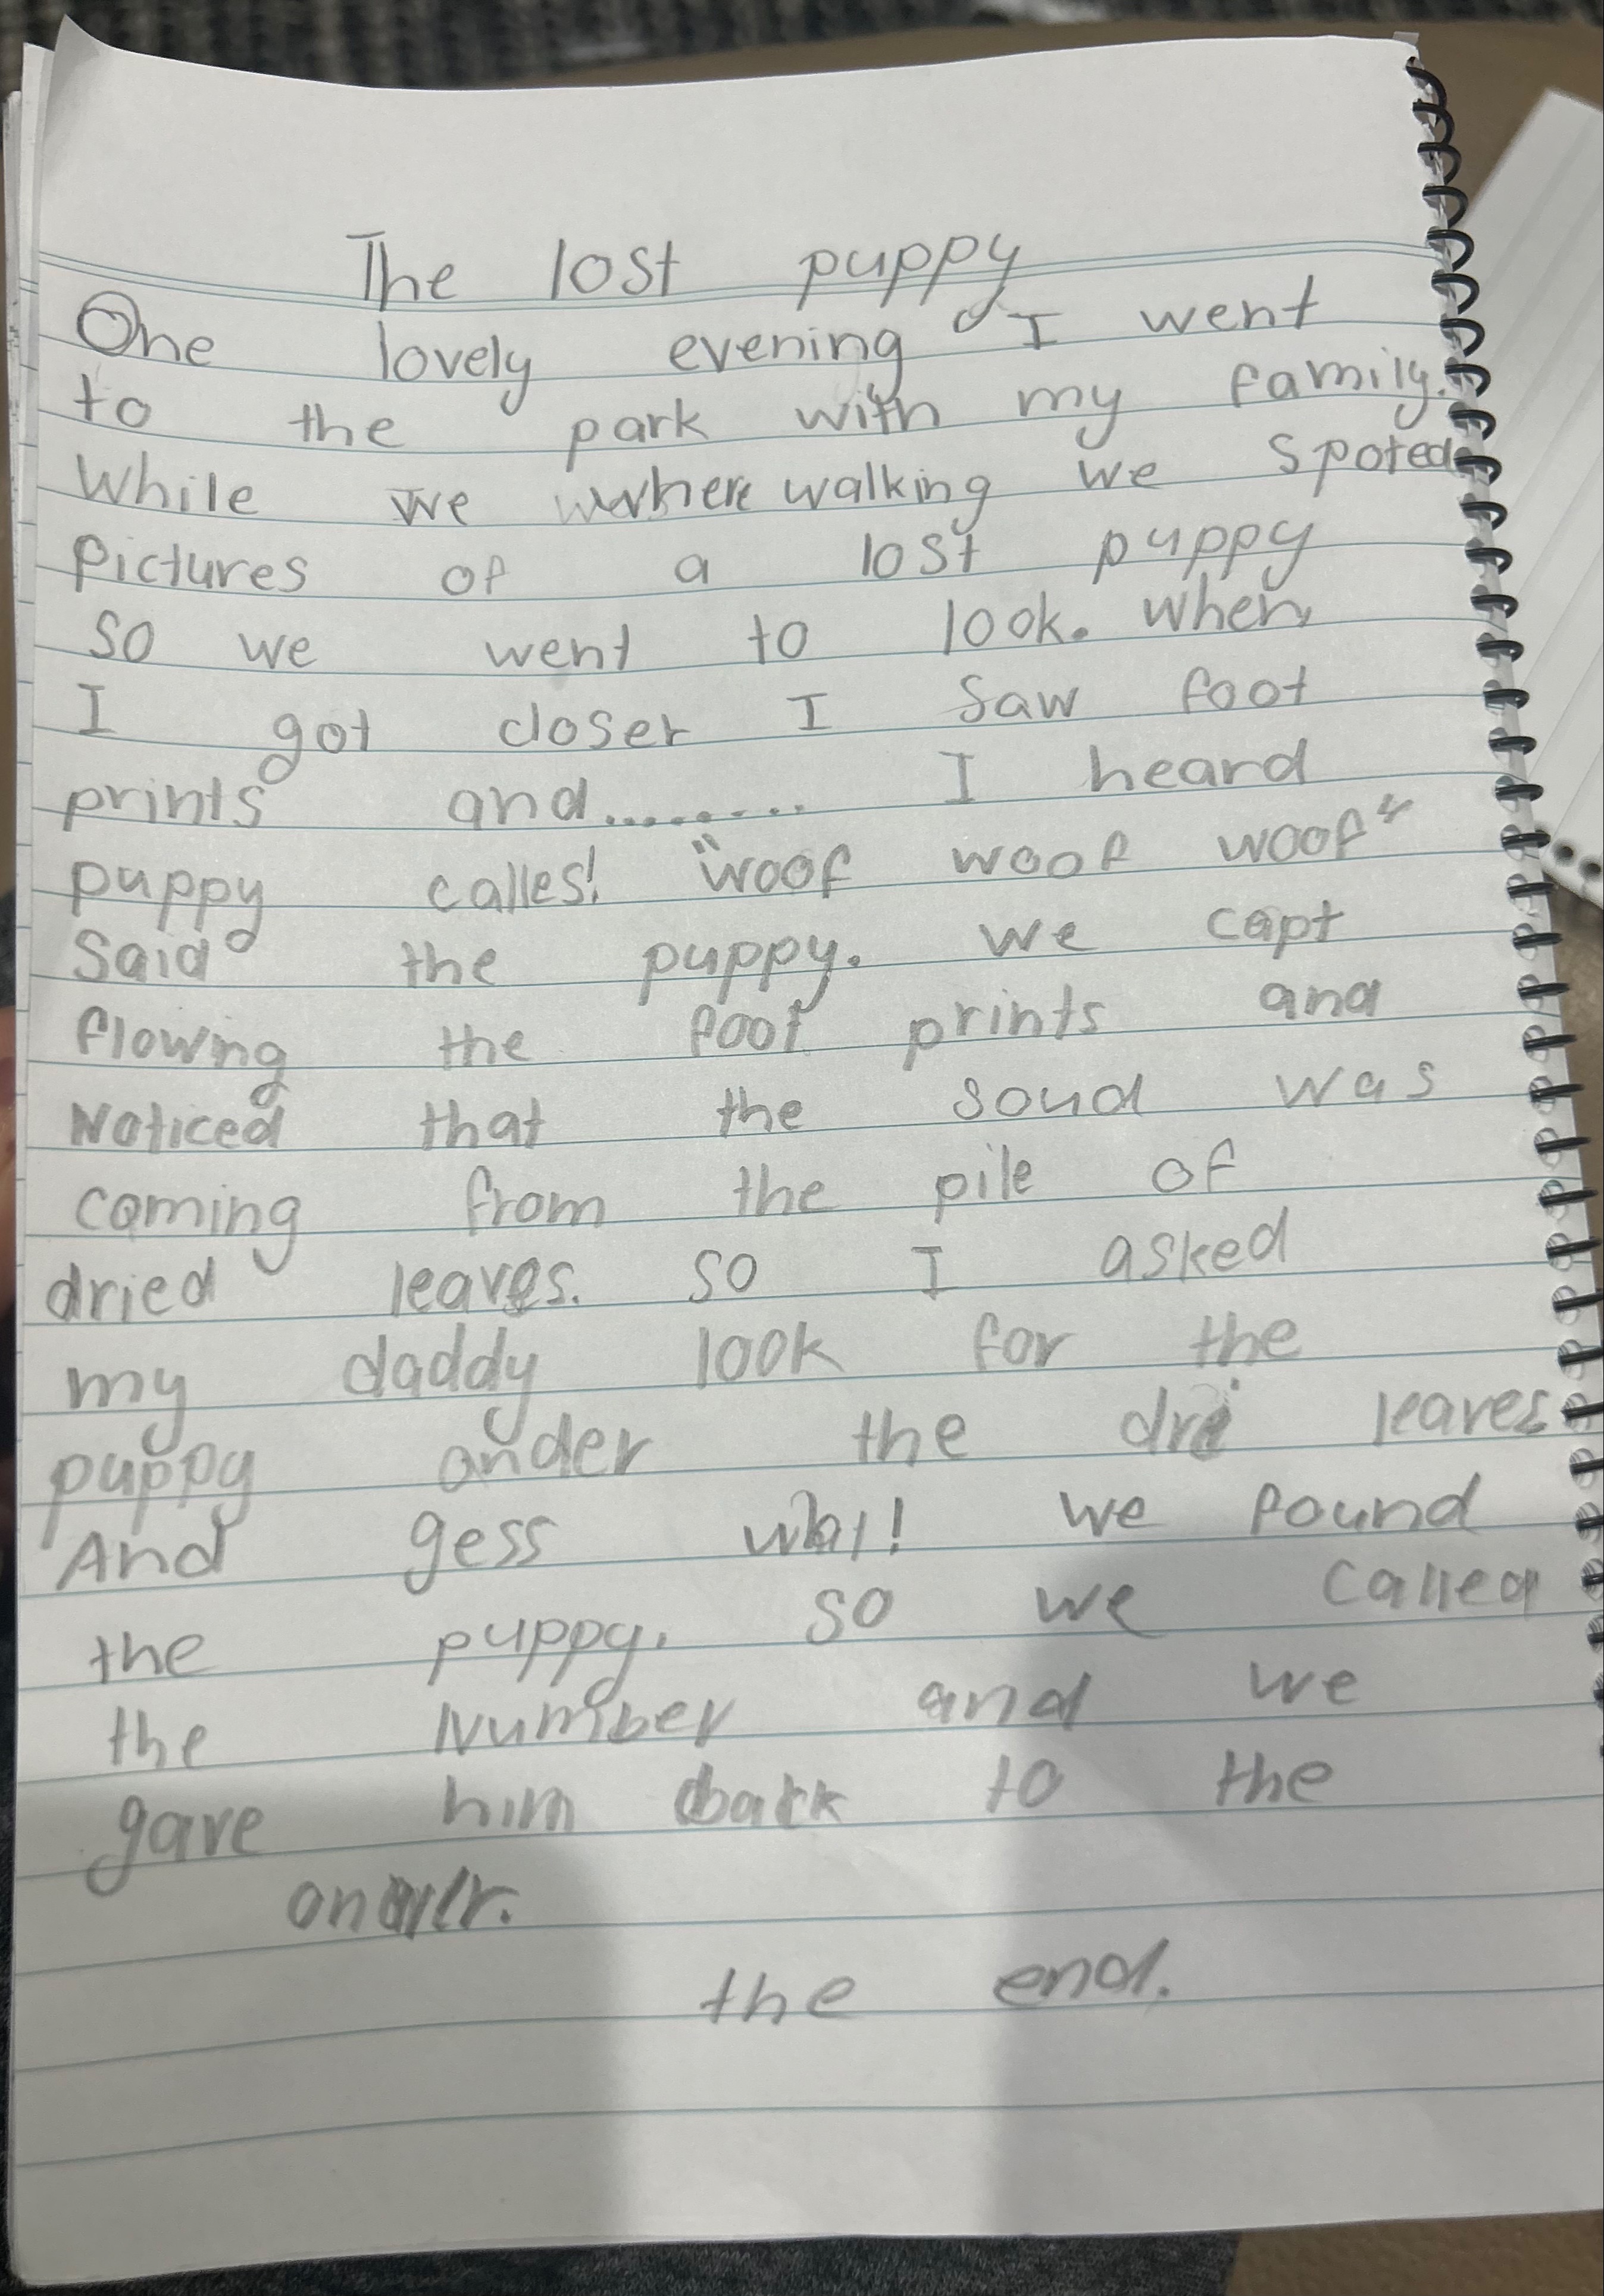 The lost puppy
One lovely evening I went
to the park with my family.
While we where walking we spoted
Pictures of a lost puppy
so we went to look. When
I got closer I saw foot
prints and........ I heard
puppy calles! "woof woof woof"
Said the puppy. we capt
flowing the foot prints and
Noticed that the soud was
coming from the pile of
dried leaves. so I asked
my daddy look for the
puppy onder the dri leaves
And gess what! we found
the puppy. so we called
the Number and we
gave him back to the
the end.